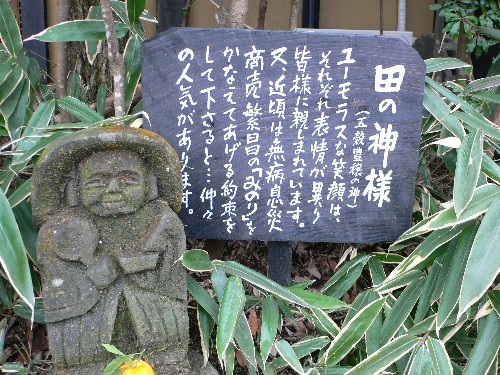 田の神様
(五穀豊穣の神)
ユーモラスな笑顔は、
それぞれ表情が異り
皆様に親しまれています。
又近頃は無病息災
商売繁昌の「みのり」を
かなえてあげる約束を
して下さると…仲々
の人気があります。